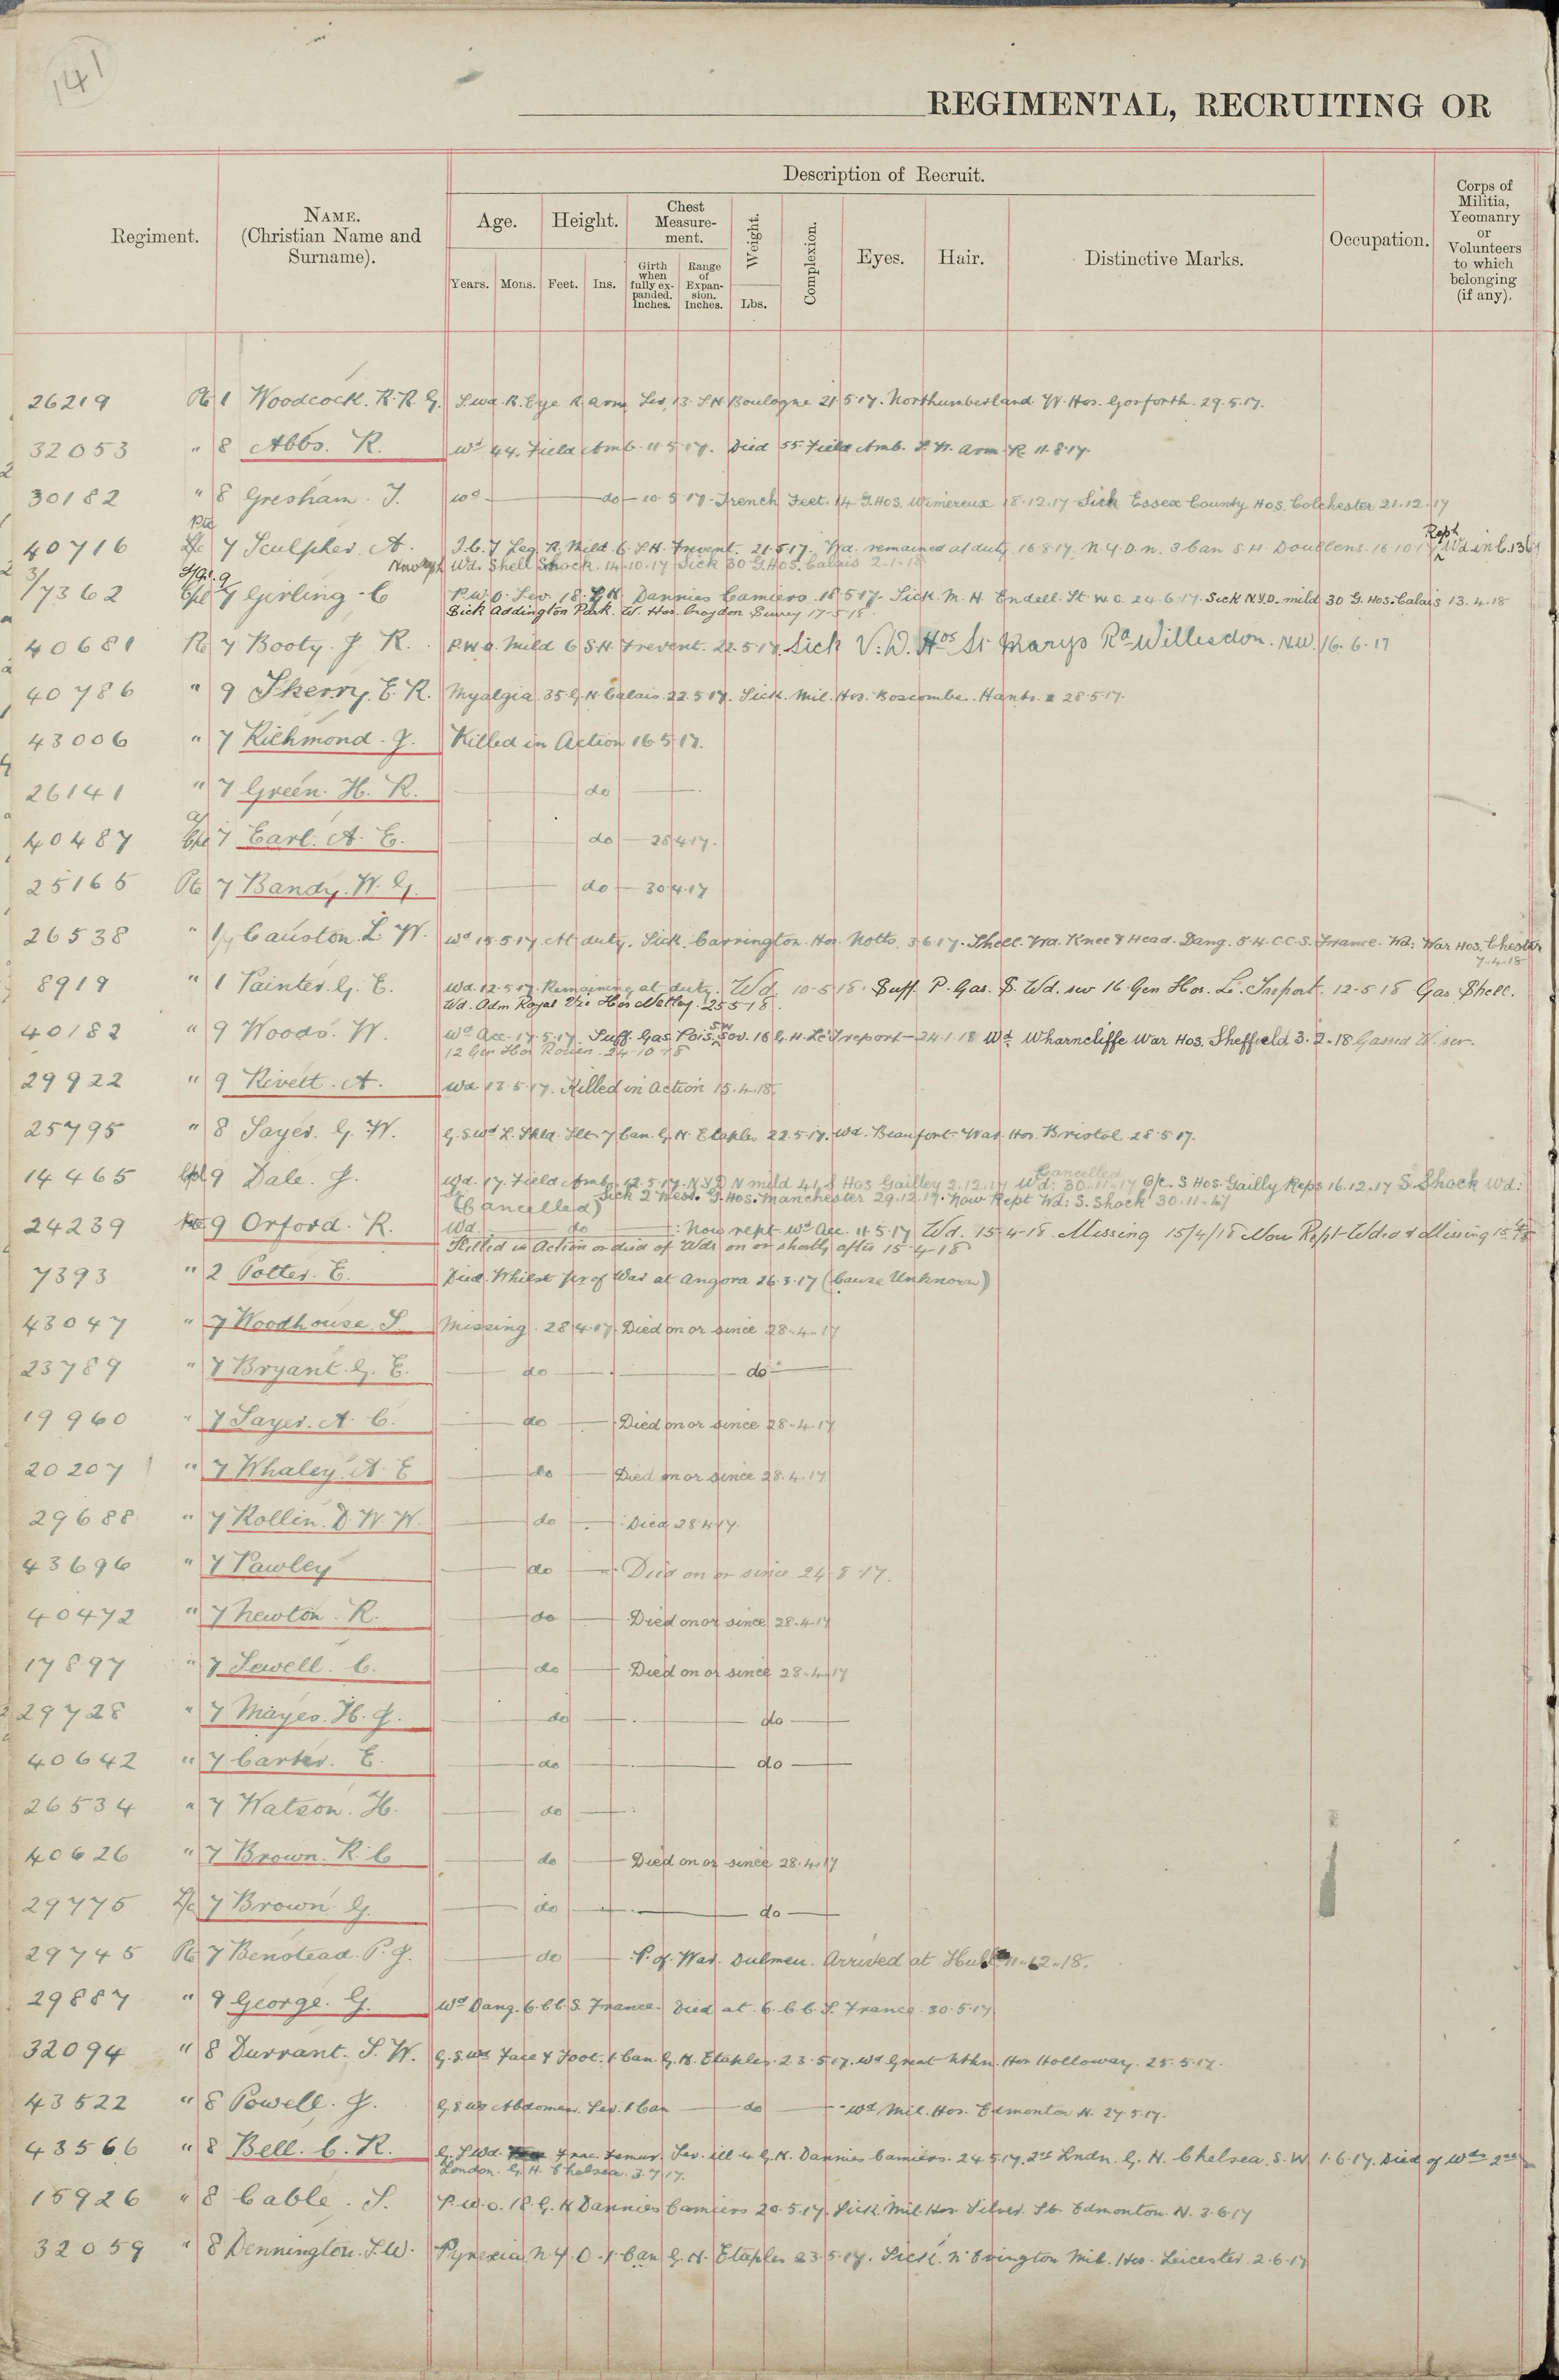 141
REGIMENTAL, RECRUITING OR
Description of Recruit.
Regiment.
NAME.
(Christian Name and
Surname).
Age.
Height.
Chest
Measure-
ment.
Weight.
Complexion.
Eyes.
Hair.
Distinctive Marks.
Occupation.
Corps of
Militia,
Yeomanry
or
Volunteers
to which
belonging
(if any).
Years.
Mons.
Feet.
Ins.
Girth
when
fully ex-
panded.
Inches.
Range
of
Expan-
sion.
Inches.
Lbs.
26219 Pte 1 Woodcock. R. R. G. S.wd. R. Eye R arm Sev. 13. S.H Boulogne 21.5.17. Northumberland W. Hos. Gosforth. 29.5.17.
32053 " 8 Abbs. R. Wd 44. Field Amb. 11.5.17. Died 55 Field Amb. arm R 11.8.17.
30182 " 8 Gresham. T. wd — do — 10.5.17. Trench Feet. 14 G. Hos. Wimereux 18.12.17 Sick Essex County Hos. Colchester 21.12.17
Pte
40716 L/c 7 Sculpher. A. I.C.T Leg. R. Mild. 6. S.H. Frevent. 21.5.17. Wd. remained at duty. 16.8.17. N.Y.D.N. 3 Can S.H. Doullens. 16.10.17
Now rept Wd. Shell Shock. 14.10.17 Sick 30 G. Hos. Calais 2.1.18
3/7362 Cpl 7 Girling. C P.U.O. Sev. 18. G.H Dannies Camiers. 18.5.17. Sick. M. H. Endell. St W.C. 24.6.17. Sick N.Y.D. mild 30 G. Hos. Calais 13.4.18
Sick Addington Park. W. Hos. Croydon Surrey 17-5-18
40681 Pte 7 Booty. J. R. P.U.O. Mild 6 S.H. Frevent. 22.5.17. Sick V.D. Hos St Marys Rd Willesdon. N.W. 16.6.17
40786 " 9 Skerry. E. R. Myalgia. 35 G.H. Calais. 22.5.17. Sick. Mil. Hos. Boscombe. Hants. 28.5.17.
43006 " 7 Richmond. J. Killed in Action 16.5.17.
26141 " 7 Green. H. R. — do —
40487 a/Cpl 7 Earl. A. E. — do — 28.4.17.
25165 Pte 7 Bandy. W. G. — do — 30.4.17
26538 " 1/7 Causton. L. W. Wd 15.5.17 At duty. Sick. Carrington. Hos. Notts. 3.6.17. Shell. Wd. Knee & Head. Dang. 54. C.C.S. France. Wd: War Hos. Chester
7.4.18
8919 " 1 Painter. G. E. Wd. 12.5.17. Remaining at duty. Wd. 10-5-18. Suff P. Gas. S. Wd. sev 16 Gen Hos. Le. Treport. 12-5-18 Gas. Shell.
Wd. Adm Royal Vic Hos Netley. 25.5.18.
40182 " 9 Woods. W. Wd Acc. 17.5.17. Suff. Gas Pois. Sev. 16 G.H. Le Treport — 24.1.18 Wd Wharncliffe War Hos. Sheffield 3.2.18 Gassed W. sev.
12 Gen Hos Rouen. 24-10-18
29922 " 9 Rivett. A. Wd 13.5.17. Killed in Action 15.4.18.
25795 " 8 Sayer. G. W. G.S.wd L. Shld. Slt. 7 Can. G.H Etaples 22.5.17. Wd. Beaufort War. Hos. Bristol 28.5.17.
14465 Cpl 9 Dale. J. Wd. 17. Field Amb. 12.5.17. N.Y.D N mild 41. S Hos Gailley 2.12.17 Wd: 30-11-17 S Hos. Gailly Reps 16.12.17 S. Shock Wd:
Cancelled
(Cancelled) Sick 2 West. G. Hos. Manchester 29.12.17. Now Rept Wd: S. Shock 30-11-17
24239 Pte 9 Orford. R. Wd. — do — : Now rept. Wd Acc. 11.5.17 Wd. 15-4-18. Missing 15/4/18 Now Rept Wded & Missing 15.4.18
Killed in Action or died of Wds on or shortly after 15-4-18
7393 " 2 Potter. E. Died. Whilst Pr of War at Angora 26.3.17 (Cause Unknown)
43047 " 7 Woodhouse. S. Missing. 28.4.17. Died on or since 28.4.17
23789 " 7 Bryant. G. E. — do — — do —
19960 " 7 Sayer. A. C. — do — Died on or since 28.4.17
20207 " 7 Whaley. A. E — do — Died on or since 28.4.17
29688 " 7 Rollin. D. W. W. — do — Died 28.4.17.
43696 " 7 Pawley — do — Died on or since 24.8.17.
40472 " 7 Newton. R. — do — Died on or since 28.4.17
17897 " 7 Sewell. C. — do — Died on or since 28.4.17
29728 " 7 Mayes. H. J. — do — — do —
40642 " 7 Carter. E. — do — — do —
26534 " 7 Watson. H. — do —
40626 " 7 Brown. R. C — do — Died on or since 28.4.17
29775 L/c 7 Brown. G. — do — — do —
29745 Pte 7 Benstead. P. J. — do — P. of War. Dulmen. Arrived at Hull 11.12.18.
29887 " 9 George. G. Wd Dang. 6. C.C.S. France. Died at 6. C.C.S. France. 30.5.17
32094 " 8 Durrant. S. W. G.S.wd Face & Foot. 1 Can. G.H. Etaples. 23.5.17. Wd Great Nthn. Hos Holloway. 25.5.17.
43522 " 8 Powell. J. G.S.wd Abdomen. Sev. 1 Can — do — Wd Mil. Hos. Edmonton N. 27.5.17.
43566 " 8 Bell. C. R. G.S.Wd. Frac. Femur. Sev. ill. 4 G.H. Dannies Camiers. 24.5.17. 2nd Lndn. G. H. Chelsea. S.W 1.6.17. Died of Wds 2nd
London. G. H. Chelsea. 3.7.17.
15926 " 8 Cable. S. P.U.O. 18. G.H Dannies Camiers 20.5.17. Sick. Mil. Hos Silver. St. Edmonton. N. 3.6.17
32059 " 8 Dennington. S.W. Pyrexia N.Y.D. 1 Can G.H. Etaples 23.5.17. Sick. N. Evington Mil. Hos. Leicester. 2.6.17